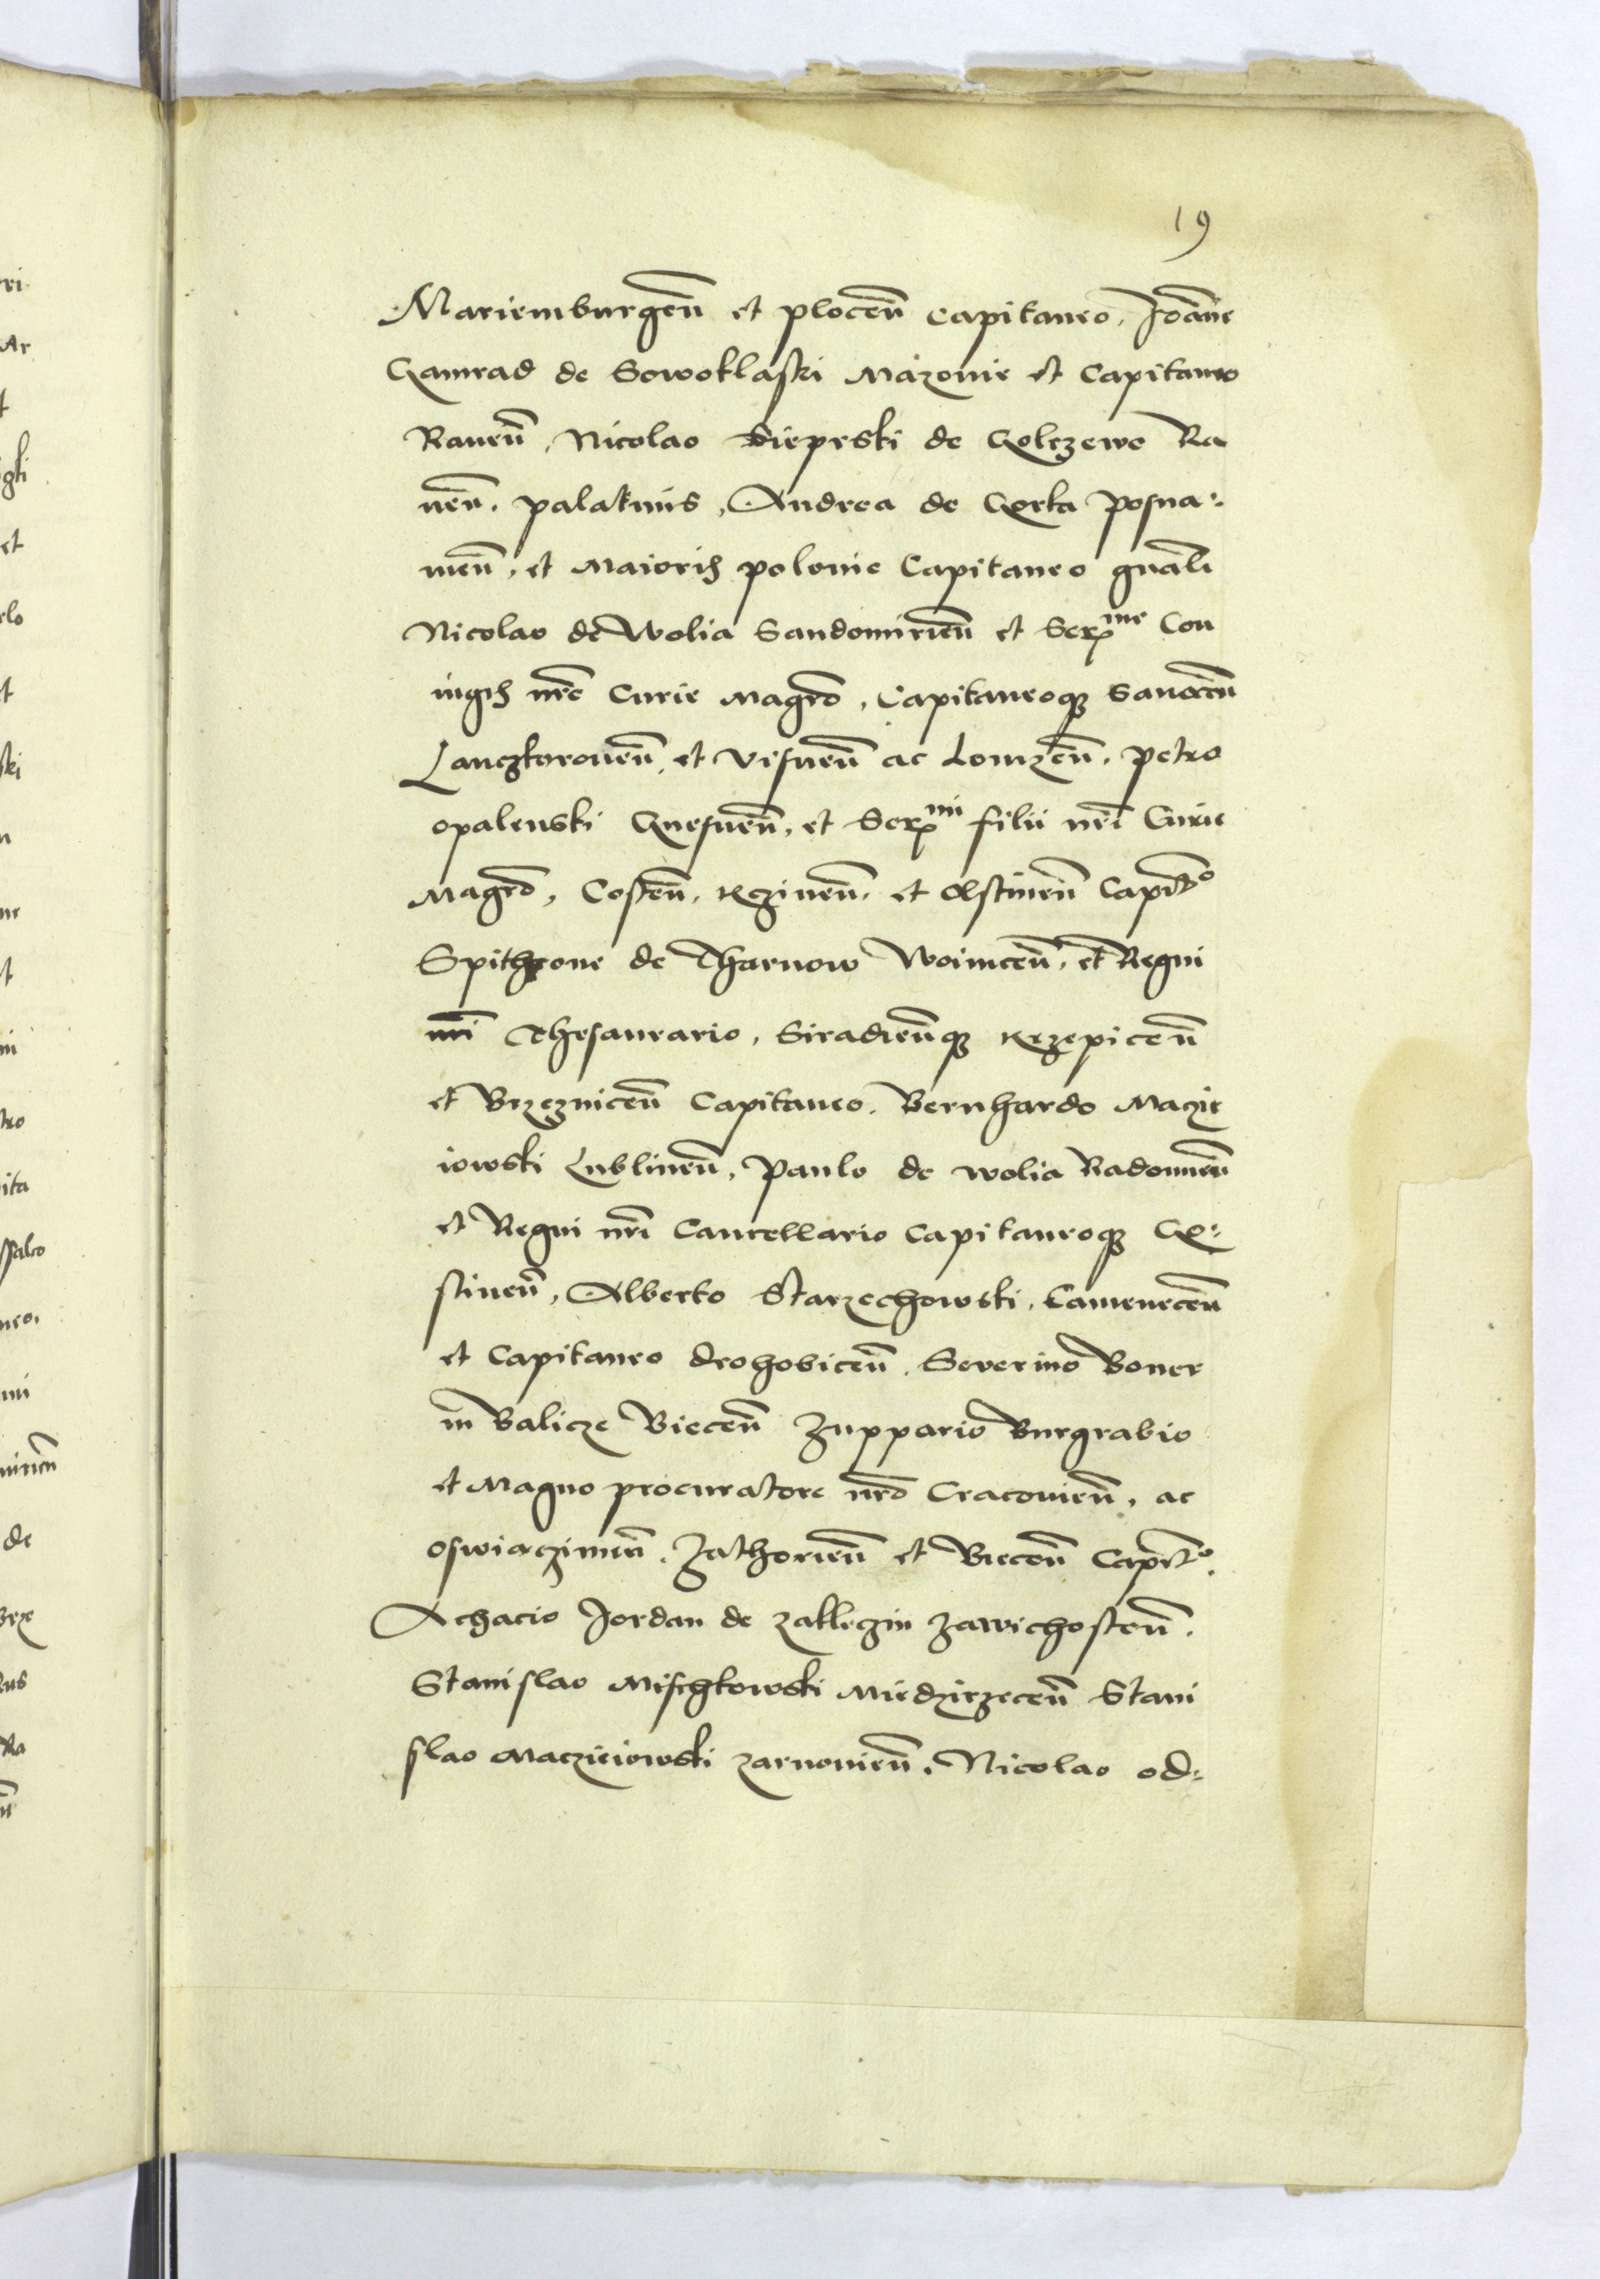 19
Mariemburgeñ et ploceñ Capitaneo, Ioãne
Gamrad de Sowoklaski Mazovie et Capitaneo
Raveñ, Nicolao Dieprski de Golczewo Ra
veñ. palatinis, Andrea de Gorka Posna-
nieñ, et Maioris polonie Capitaneo gñali
Nicolao de Wolia Sandomirieñ et Ser^me Con
iugis nr̃e Curie Magr̃o, Capitaneoq3 Sanoceñ
Lanczkoroneñ, et Visneñ ac Lomzeñ. petro
opalenski Gnesneñ, et Ser^mi filii nr̃i Curie
Magr̃o, Costeñ. Kczineñ. et Olstineñ Capit^o
Spithcone de Tharnow Woiniceñ, et Regni
nr̃i Thesaurario, Siradieñq3 Krzepiceñ
et Brzezniceñ Capitaneo. Bernhardo Maczie
iowski Lublineñ, Paulo de Wolia Radomieñ
et Regni nr̃i Cancellario Capitaneoq3 Go-
stineñ, Alberto Starzechowski, Cameneceñ
et Capitaneo drohobiceñ. Severino Boner
in Balicze Bieceñ Zuppario Burgrabio
et Magno procuratore nr̃o Cracovieñ, ac
oswiaczimeñ. Zathorieñ et Bieceñ Capit^o.
Achacio Jordan de zakliczin Zawichosteñ.
Stanislao Mischkowski Miedzirzeceñ Stani
slao Macziciowski zarnovieñ. Nicolao od-